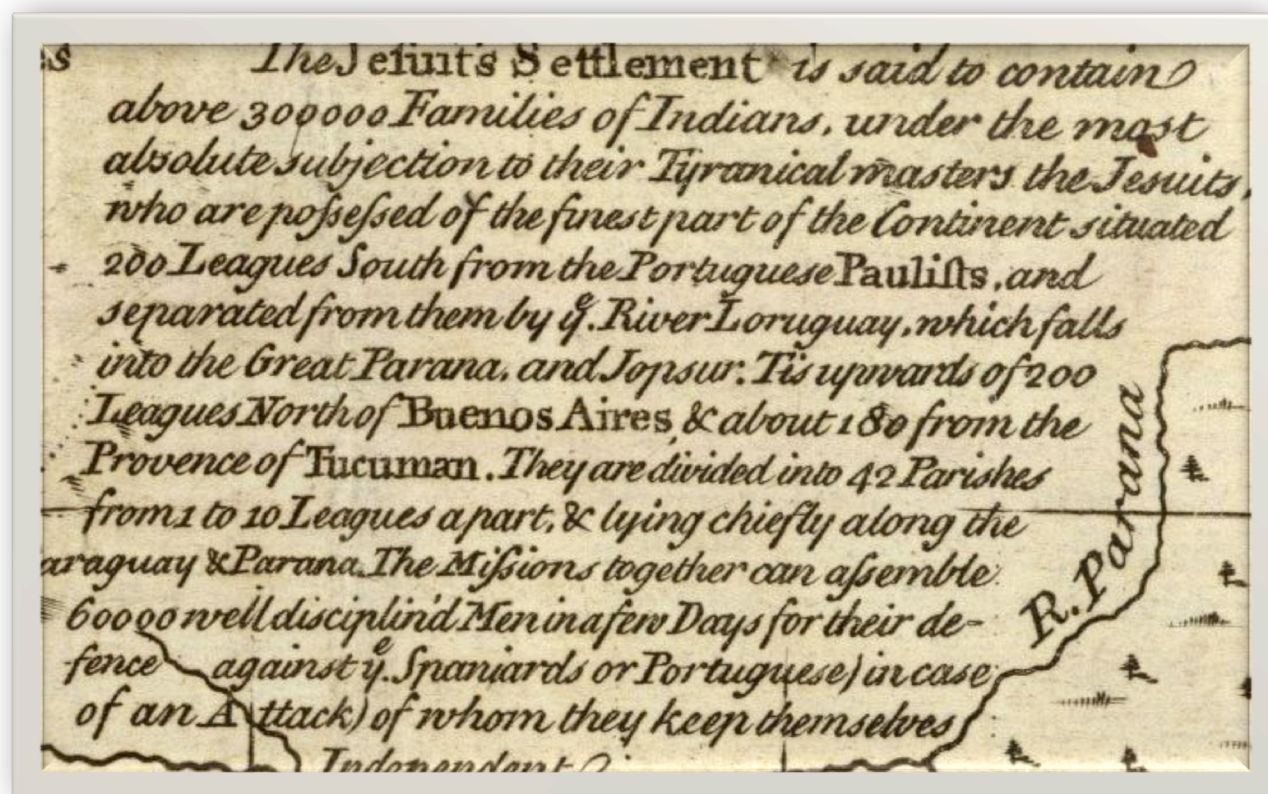 s The Jesuit's Settlement is said to contain
above 300000 Families of Indians, under the most
absolute subjection to their Tyranical masters the Jesuits,
who are poſseſsed of the finest part of the Continent situated
200 Leagues South from the Portuguese Pauliſts, and
separated from them by yͤ. River Loruguay, which falls
into the Great Parana, and Jopsur. Tis upwards of 200
Leagues North of Buenos Aires, & about 180 from the
Provence of Tucuman. They are divided into 42 Parishes
from 1 to 10 Leagues apart, & lying chiefly along the
araguay & Parana. The Miſsions together can aſsemble
60000 well disciplin'd Men in a few Days for their de-
fence against yͤ. Spaniards or Portuguese) in case
of an Attack) of whom they keep themselves
Independent
R. Parana